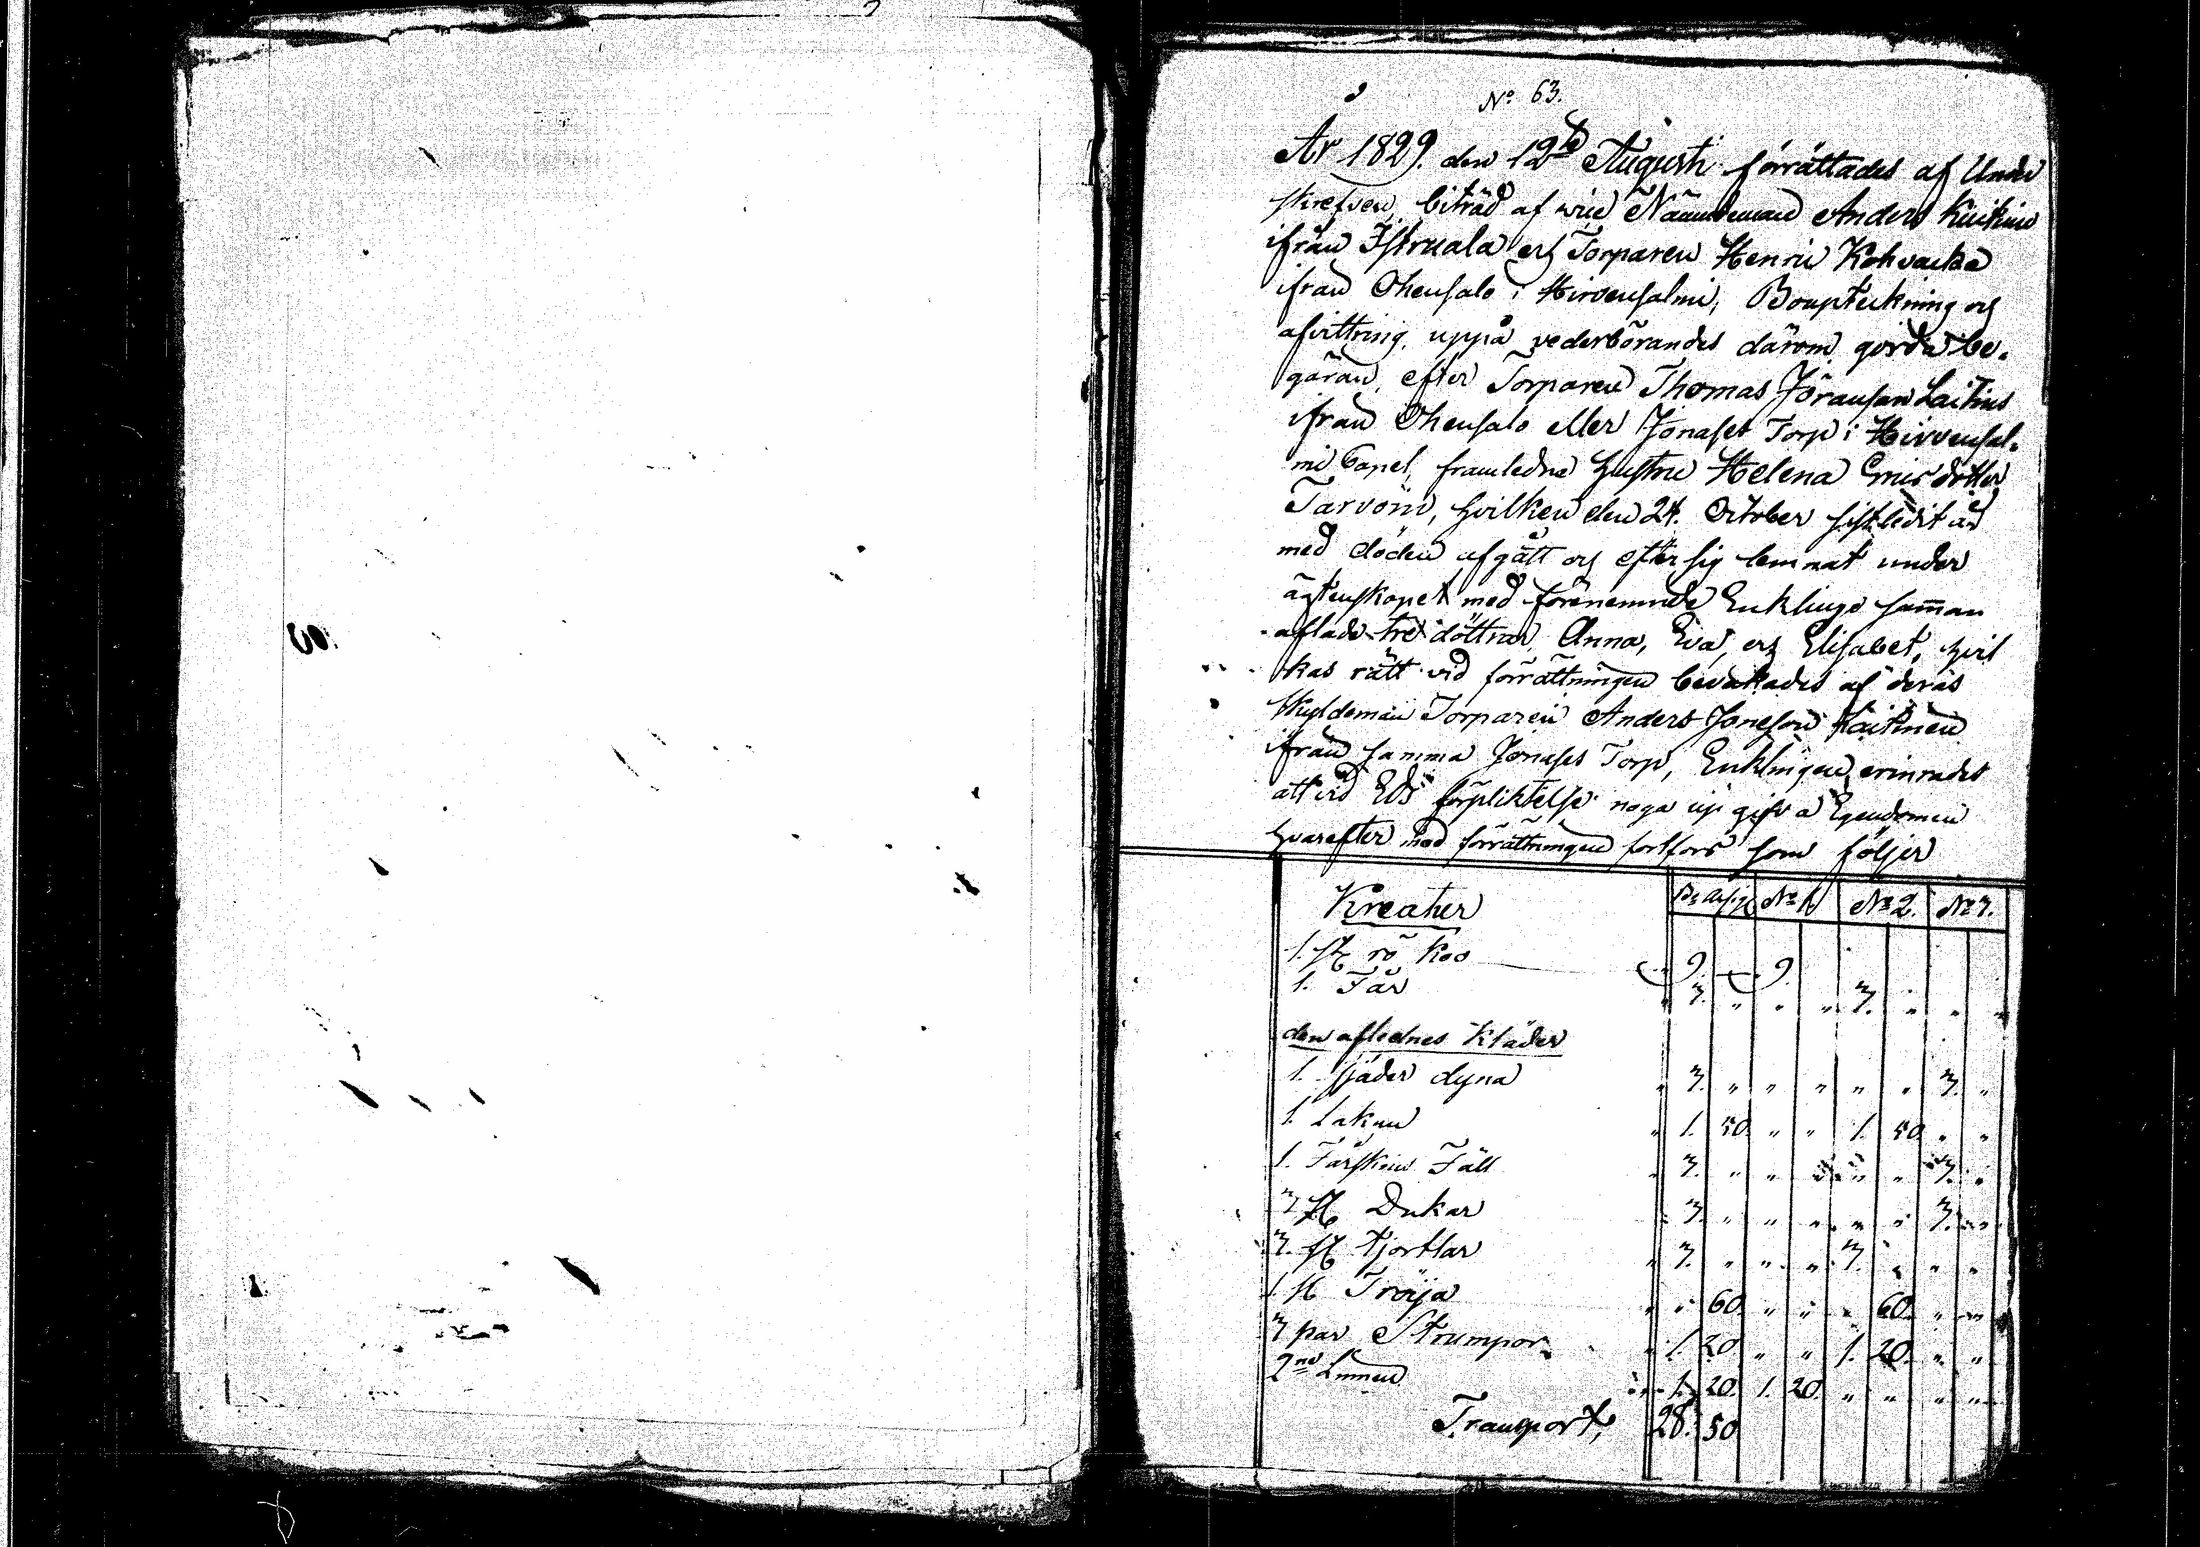 No 63.
År 1829. den 12te Augusti förrättades af Under
skrefven, biträd af wice Nämndeman Anders Kuikin
ifrån Istruala och Torparen Henric Kohvacka
ifrån Ohensalo i Hirvensalmi, Bouptekning och
afvittring, uppå vederbörandes därom gjorda be-
gäran, efter Torparen Thomas Jöransson Laitins
ifrån Ohensalo eller Jonases Torp i Hirvensal-
mi Capel, framledna hustru Helena Ericsdotter
Tarvoin, hvilken den 24. October sistledit år
med döden afgått och efter sig lemnat under
ägtenskapet med förenemnde Enkling samman
aflade tre döttrar, Anna, Eva, och Elisabet, hvil
kas rätt vid förrättningen bevakades af deras
skyldeman Torparen Anders Joneson Laitinen
ifrån samma Jonases Torp, Enklingen erinrades
att vid Eds förpliktelse noga upgifva Egendomen
hvarefter med förrättningen fortfors som följer
Kreatur No 1. No 2. No 3.
1. st. rö koo 9. 9.
1. Får 3. " " " 3. " " "
den aflednes Kläder
1. fjäder dyna " 3. " " " " " 3. "
1. Lakan " 1. 50. " " 1. 50. " "
1. Fårskins Fäll " 3. " " " " " 3. "
3 st. Dukar " 3. " " " " " 3. "
3. st. Kjortlar " 3. " " " 3. " " "
1. st Tröija " " 60. " " " 60. " "
3 par Strumpor " 1. 20. " " 1. 20. " "
2ne Linnen " 1. 20. 1. 20. " " " "
Transport, 28. 50